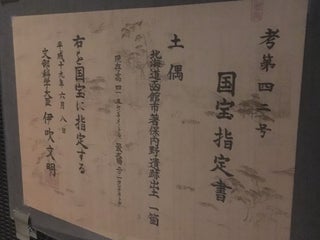 考第四二号
国宝指定書
土偶
北海道函館市著保内野遺跡出土 一箇
現存高四一・五センチメートル
右を国宝に指定する
平成十九年六月八日
文部科学大臣 伊吹文明